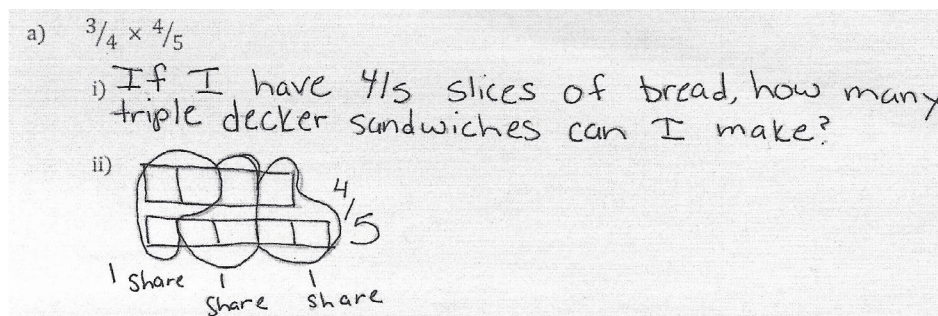 a) 3/4 × 4/5
i) If I have 4/5 slices of bread, how many
triple decker sandwiches can I make?
ii)
4/5
1 share
1 share
1 share